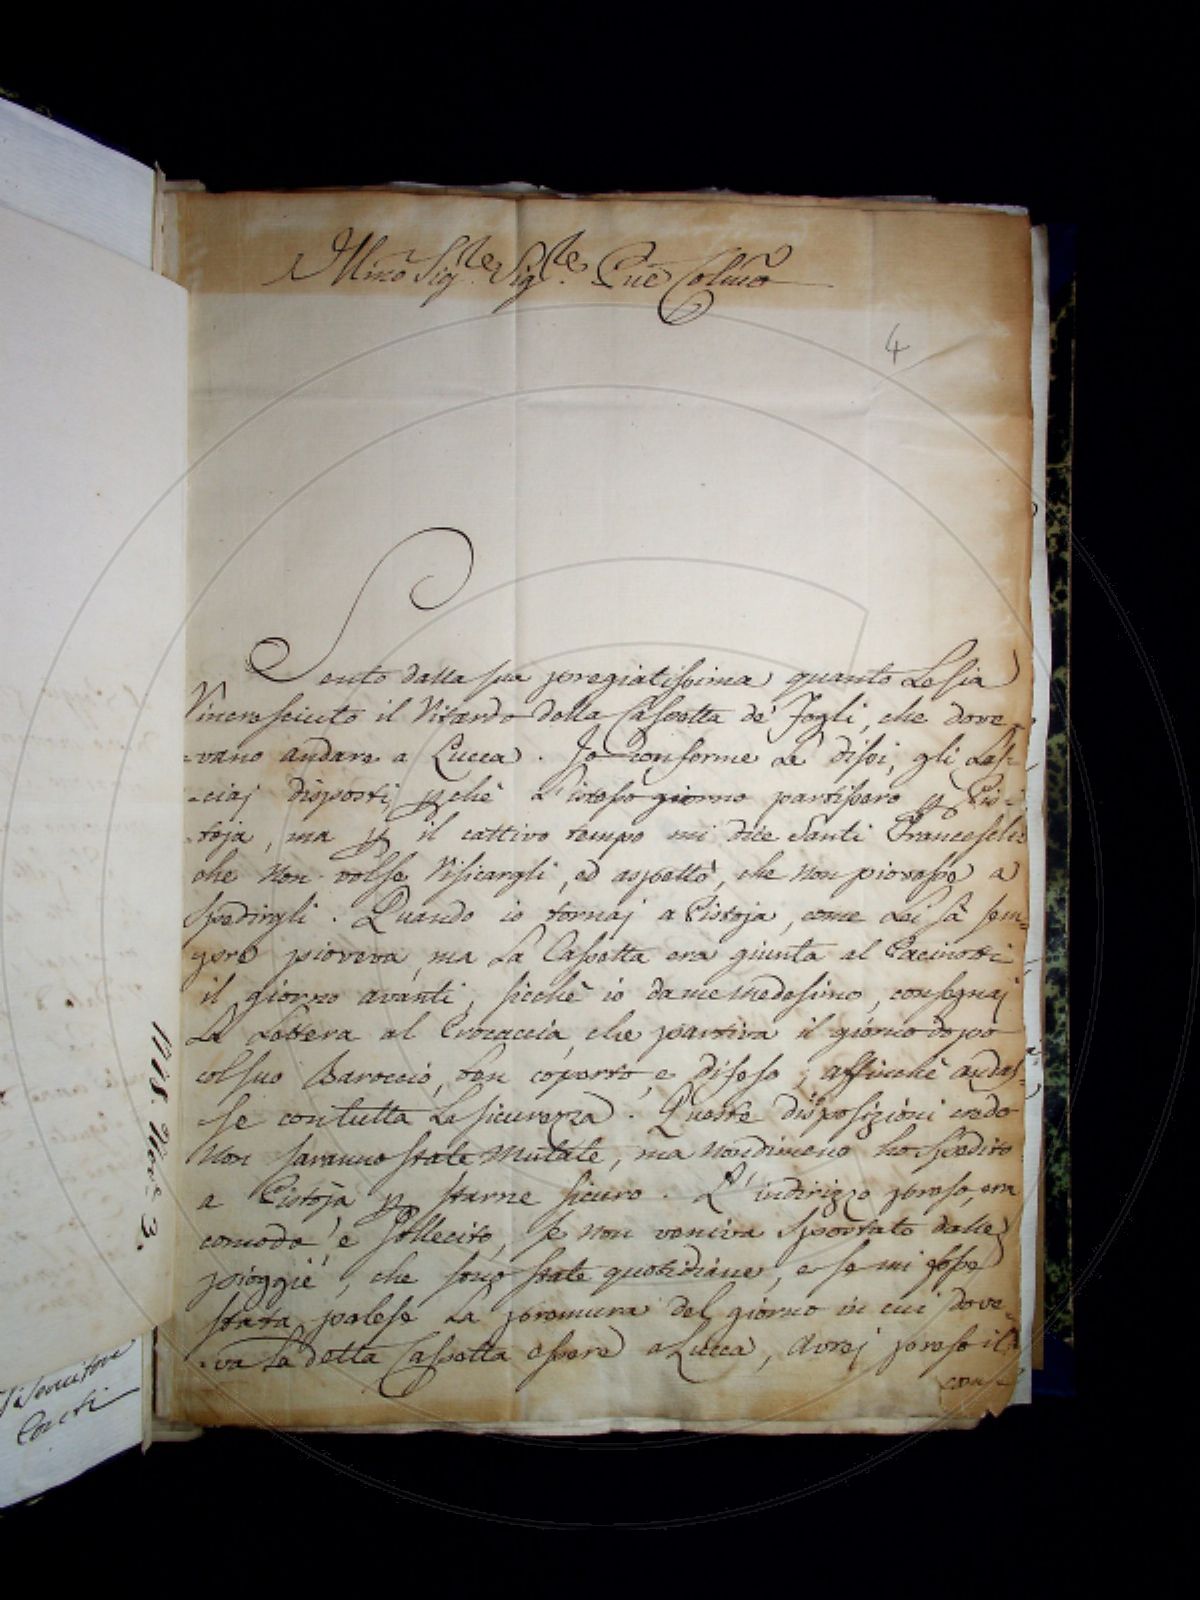 Illmo Sig.re Sig.re Pne Colmo
4
Sento dalla sua pregiatissima quanto Le sia
rincresciuto il ritardo della Cassetta de' Fogli, che dove=
=vano andare a Lucca. Io conforme Le dissi, gli Las=
=ciaj disposti pchè l'istesso giorno partissero p Pis=
=toja, ma p il cattivo tempo mi dice Santi Franceschi
che non volse risicargli, ed aspettò, che non piovesse a
spedirgli. Quando io tornaj a Pistoja, come Lei sà sem=
pre pioveva, ma La Cassetta era giunta al Pacinotti
il giorno avanti, sicchè io da me medesimo, consegnaj
La Lettera al Procaccia, che partiva il giorno dopo
col suo Baroccio, ben coperto, e difeso, affinchè andas=
=se con tutta La sicurezza. Queste disposizioni credo
non saranno state mutate, ma nondimeno ho spedito
a Pistoja p starne sicuro. L'indirizzo preso, era
comodo, e sollecito, se non veniva sportato dalle
pioggie, che sono state quotidiane, e se mi fosse
stata palese La premura del giorno in cui dove=
=va La detta Cassetta essere a Lucca, avrej preso il
con=
1718. Nov. 3.
servitore
Conti